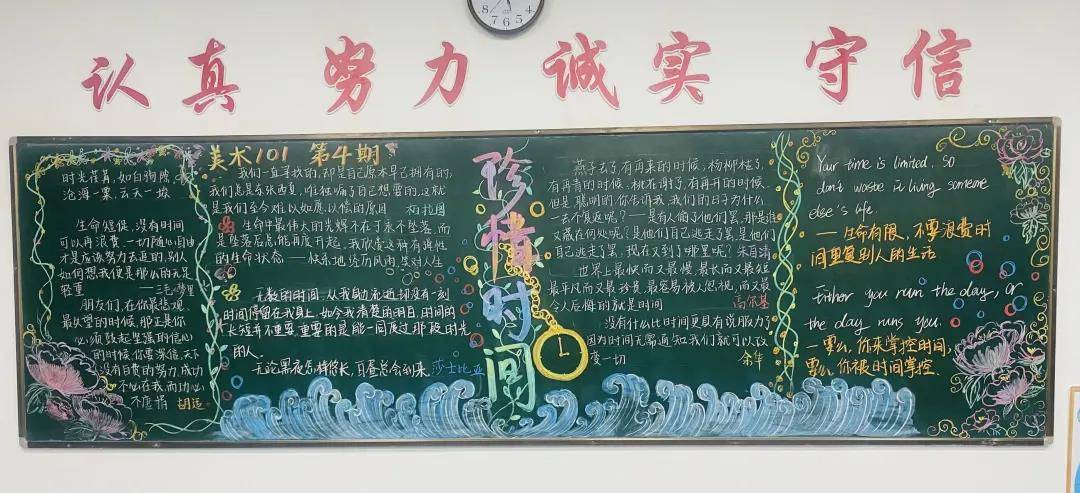 8 7 6 5 4
认真 努力 诚实 守信
美术101 第4期
珍惜时间
时光荏苒,如白驹隙,
沧海一粟,云天一埃
生命短促,没有时间
可以再浪费,一切随心自由
才是应该努力去追的,别人
如何想我便是那么的无足
轻重 ——三毛《梦里
朋友们,在你最悲观、
最失望的时候,那正是你
必须鼓起坚强的信心
的时候,你要深信,天下
没有白费的努力,成功
不必在我,而功心
不虚捐 胡适
我们一直寻找的,却是自己原本早已拥有的;
我们总是东张西望,唯独漏了自己想要的,这就
是我们至今难以如愿以偿的原因 柏拉图
生命中最伟大的光辉不在于永不坠落,而
是坠落后总能再度升起,我欣赏这种有弹性
的生命状态——快乐地经历风雨,笑对人生
无数的时间,从我身边流逝,却没有一刻
时间停留在我身上,如今我清楚的明白,时间的
长短并不重要,重要的是能一同度过那段时光
的人。
无论黑夜怎样悠长,白昼总会到来 莎士比亚
燕子去了,有再来的时候,杨柳枯了,
有再青的时候,桃花谢了,有再开的时候,
但是聪明的,你告诉我,我们的日子为什么
一去不复返呢?——是有人偷了他们罢:那是谁
又藏在何处呢?是他们自己逃走了罢:是他们
自己逃走了罢:现在又到了哪里呢? 朱自清
世界上最快而又最慢,最长而又最短
最平凡而又最珍贵,最容易被人忽视,而又最
令人后悔的就是时间 高尔基
没有什么比时间更具有说服力了
因为时间无需通知我们就可以改
变一切 余华
Your time is limited, so
don't waste it living someone
else's life.
——生命有限,不要浪费时
间重复别人的生活
Either you run the day, or
the day runs you.
一要么,你来掌控时间;
要么,你被时间掌控.